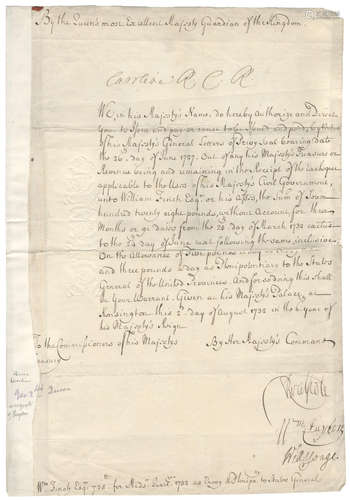 By the Queen's most Excellent Majesty Guardian of the Kingdom
Caroline R C R
We in his Majesty's Name, do hereby Authorize and Direct
You to Issue and pay or cause to be Issued and paid, by virtue
of his Majesty's General Letters of Privy Seal bearing date
the 26. day of June 1727. Out of any his Majesty's Treasure or
Revenue being and remaining in the Receipt of the Exchequer
applicable to the Uses of his Majesty's Civil Government,
unto William Finch Esqr. or his Assigs, the Sum of Seven
hundred twenty eight pounds, without Account for three
Months or 91 dates from the 24 day of March 1731 last to
the 24 day of June following the same inclusive
On the Allowance of Five pounds
and three pounds a day as Plenipotentiary to the States
General of the United Provinces And for so doing this shall
be Your Warrant. Given at his Majesty's Palace at
Kensington this 2d. day of August 1732 in the 6 year of
his Majesty's Reign
To the Commissioners of his Majesty's By Her Majesty's Command
Treasury
Queen
Wm Finch Esqr. 728£ for Mids. 1732 as Envoy & to States General